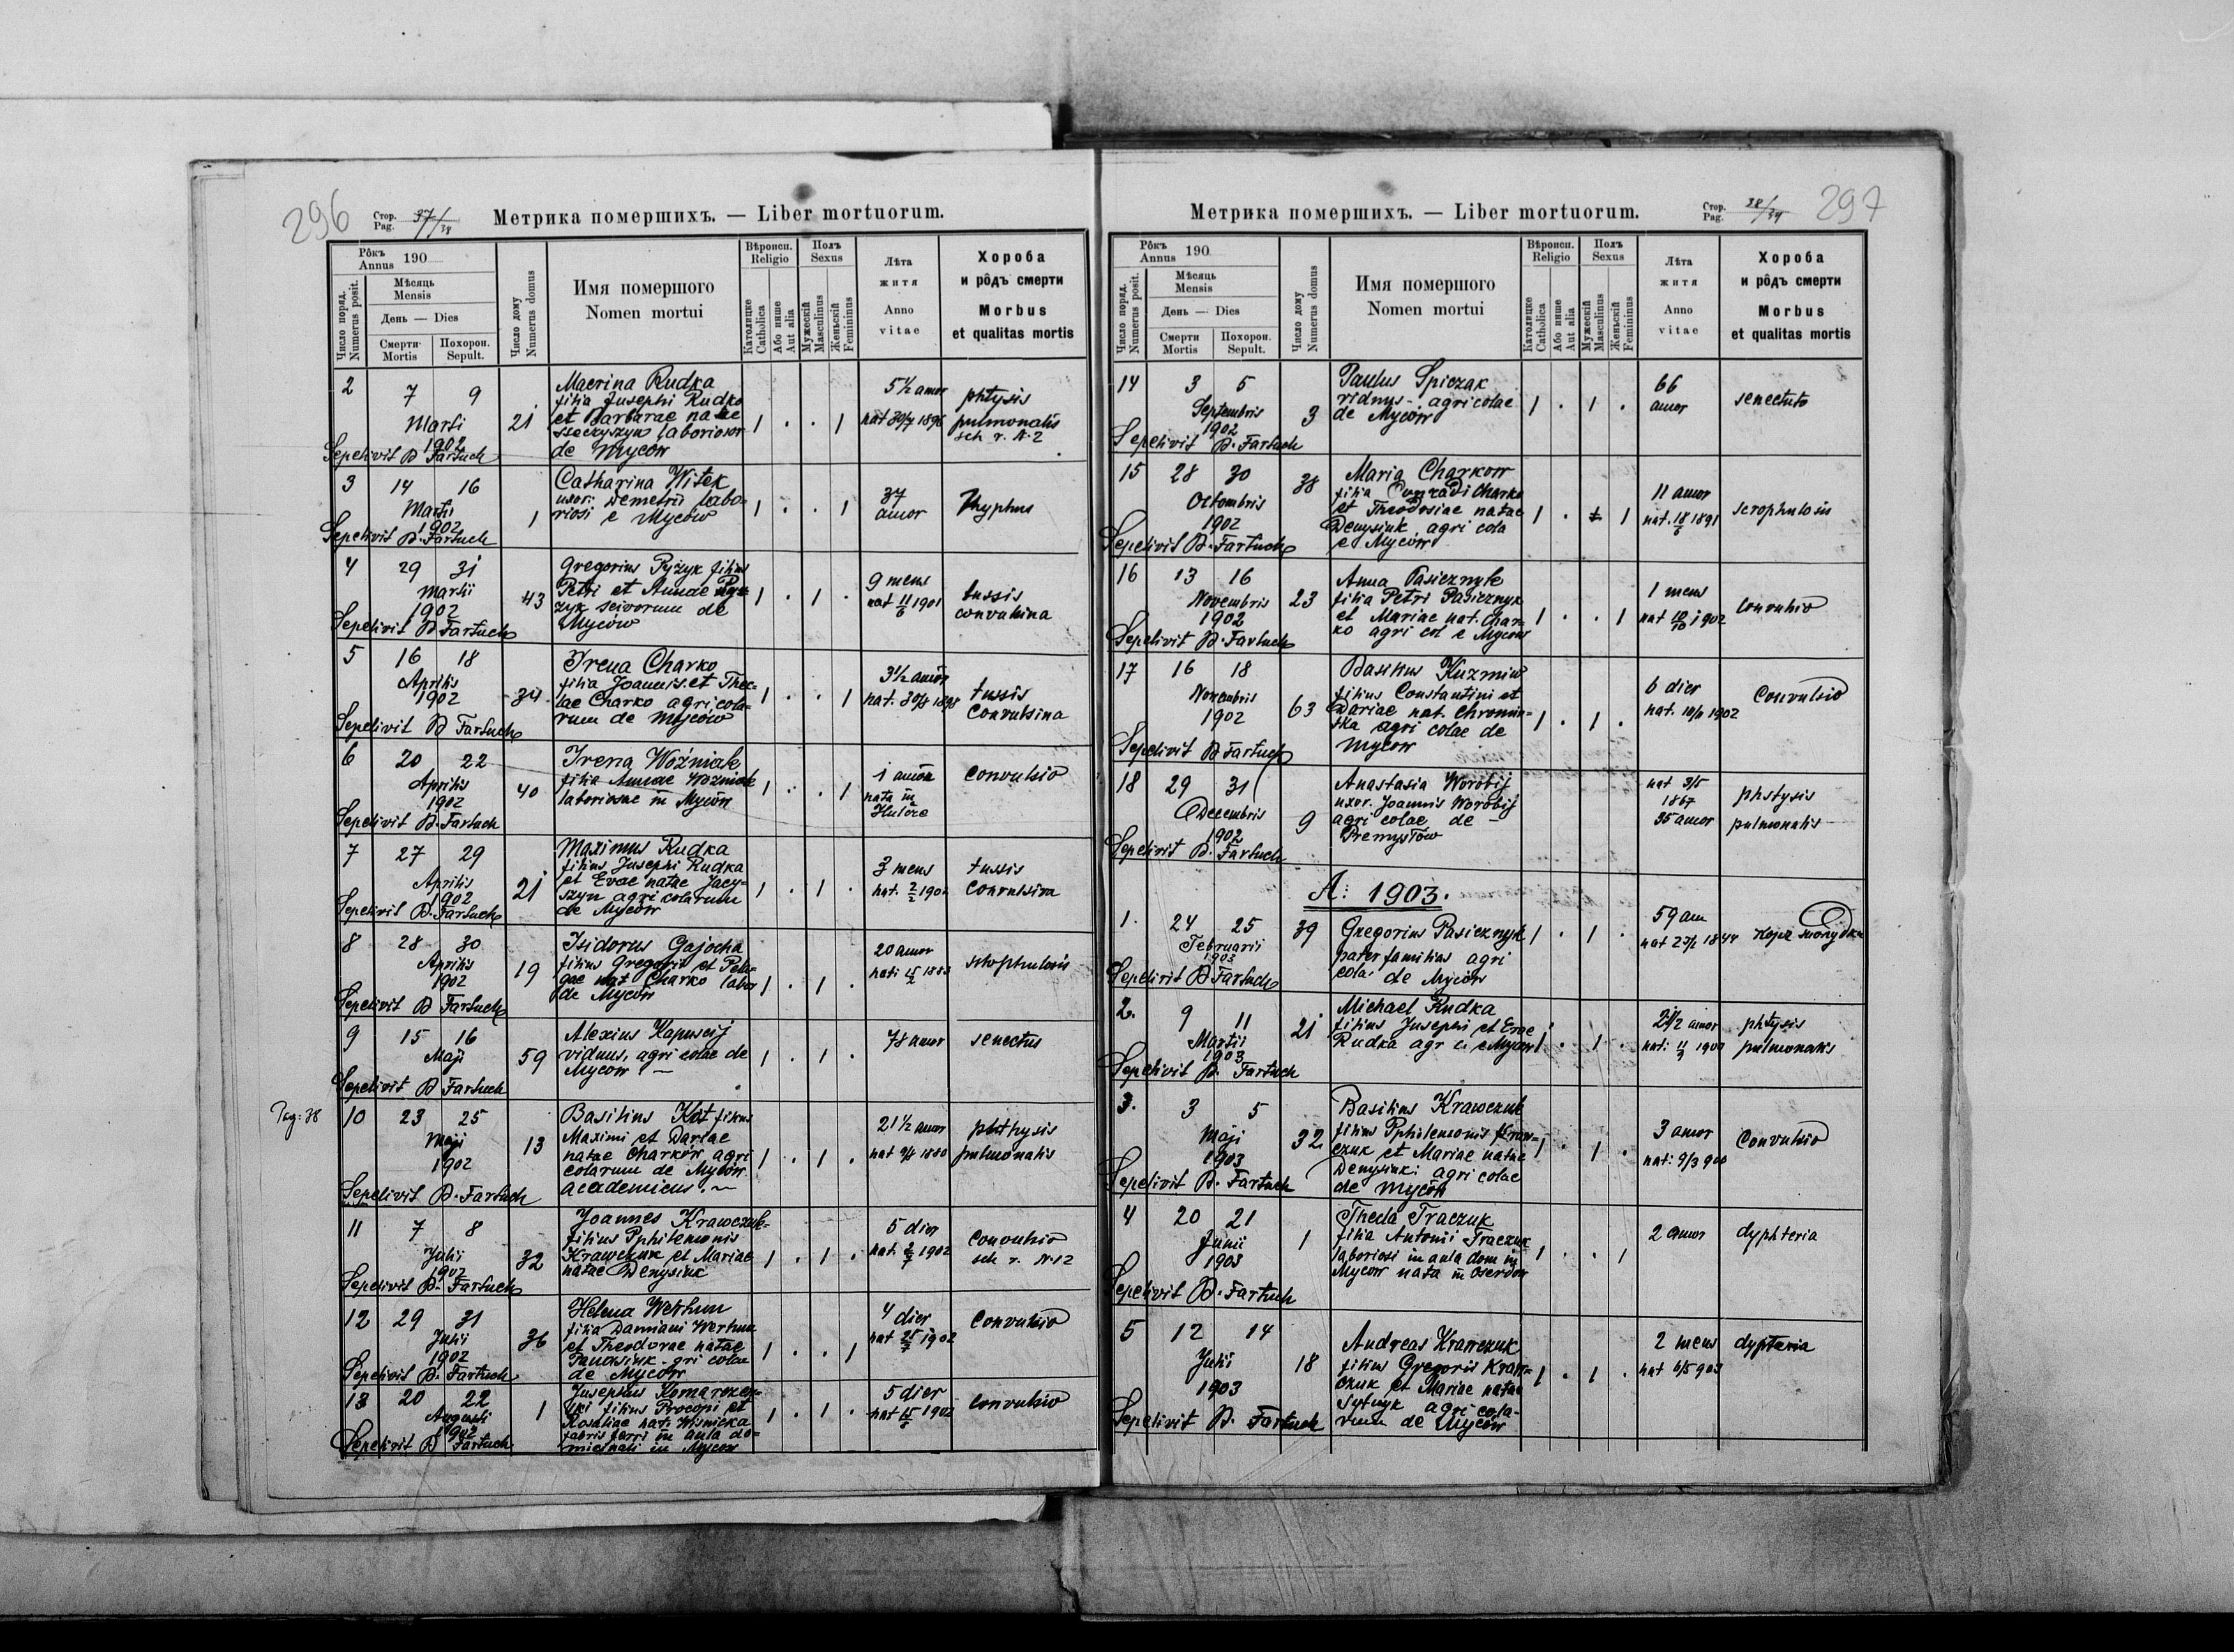 296
Стор. 37/
Pag. /38
Метрика помершихъ. — Liber mortuorum.
Рôкъ
Annus 190
Число поряд.
Numerus posit.
Мѣсяць
Mensis
День — Dies
Смерти
Mortis
Похорон.
Sepult.
Число дому
Numerus domus
Имя помершого
Nomen mortui
Вѣроисп.
Religio
Католицке
Catholica
Або инше
Aut alia
Полъ
Sexus
Мужескій
Masculinus
Женьскій
Femininus
Лѣта
житя
Anno
vitae
Хороба
и рôдъ смерти
Morbus
et qualitas mortis
2 7 9
Marti
1902
Sepelivit B Fartuch
21
Macrina Rudka
filia Josephi Rudko
et Barbarae natae
laborioror
de Myców
1 . . 1
5 1/2 annor
nat 30/7 1896
phtysis
pulmonalis
sch r. N. 2
3 14 16
Martii
1902
Sepelivit B. Fartuch
1
Catharina Witek
uxor. Demetrii labo-
riosi e Myców
1 . . 1
37
annor
Thyphus
4 29 31
Martii
1902
Sepelivit B Fartuch
43
Gregorius Pyżyk filius
Petri et Annae Py-
żyk scivorum de
Myców
1 . 1 .
9 mens
nat 11/6 1901
tussis
convulsina
5 16 18
Aprilis
1902
Sepelivit B Fartuch
34
Irena Charko
filia Joannis et Thec-
lae Charko agricola-
rum de Myców
1 . . 1
3 1/2 annor
nat. 30/8 1898
tussis
convulsina
6 20 22
Aprilis
1902
Sepelivit B. Fartuch
40
Irena Woźniak
filia Annae Woźniak
laboriosae in Myców
1 . . 1
1 annor
nata in
Hulcze
convulsio
7 27 29
Aprilis
1902
Sepelivit B. Fartuch
21
Maximus Rudka
filius Josephi Rudka
et Evae natae Jacy-
szyn agricolarum
de Myców
1 . 1 .
3 mens
nat. 2/2 1902
tussis
convulsiva
8 28 30
Aprilis
1902
Sepelivit B Fartuch
19
Isidorus Gajocha
filius Gregorii et Pela-
gae nat Charko labor
de Myców
1 . 1 .
20 annor
nat: 15/2 1882
scrophulosis
9 15 16
Maji
Sepelivit B Fartuch
59
Alexius Kapuscij
viduus, agricolae de
Mycow —
1 . 1 .
78 annor
senectus
Pag: 38
10 23 25
Maji
1902
Sepelivit B. Fartuch
13
Basilius Kot filius
Maximi et Dariae
natae Charków agri
colarum de Myców
academicus. —
1 . 1 .
21 1/2 annor
nat 1880
phthysis
pulmonalis
11 7 8
Julii
1902
Sepelivit B. Fartuch
32
Joannes Krawczuk
filius Pphilemonis
Krawczuk et Mariae
natae Denysiuk
1 . 1 .
5 dier
nat. 2/7 1902
convulsio
sch r. N 12
12 29 31
Julii
1902
Sepelivit B. Fartuch
36
Helena Werhun
filia Damiani Werhun
et Theodorae natae
Panowiuk - gri colae
de Mycow
1 . . 1
4 dier
nat 25/7 1902
convulsio
13 20 22
Augusti
1902
Sepelivit B Fartuch
1
Josephus Komarzew-
ski filius Procopi et
Rosaliae nat. Wisnicka
fabris ferri in aula do-
minicali in Mycow
1 . 1 .
5 dier
nat 15/8 1902
convulsio
Метрика помершихъ. — Liber mortuorum.
Стор. 38/
Pag. /39
297
Рôкъ
Annus 190
Число поряд.
Numerus posit.
Мѣсяць
Mensis
День — Dies
Смерти
Mortis
Похорон.
Sepult.
Число дому
Numerus domus
Имя помершого
Nomen mortui
Вѣроисп.
Religio
Католицке
Catholica
Або инше
Aut alia
Полъ
Sexus
Мужескій
Masculinus
Женьскій
Femininus
Лѣта
житя
Anno
vitae
Хороба
и рôдъ смерти
Morbus
et qualitas mortis
14 3 5
Septembris
1902
Sepelivit B. Fartuch
3
Paulus Spiczak
vidnus - agricolae
de Myców
1 . 1 .
66
annor
senectute
15 28 30
Octombris
1902
Sepelivit B. Fartuch
38
Maria Charkow
filia Conradi Charko
et Theodosiae natae
Denysiuk agri cola
e Myców
1 . 1
11 annor
nat. 18/6 1891
scrophulosis
16 13 16
Novembris
1902
Sepelivit B. Fartuch
23
Anna Pasicznyk
filia Petri Pasicznyk
et Mariae nat. Char-
ko agri col e Mycow
1 . . 1
1 mens
nat 10/10 1902
convulsio
17 16 18
Novembris
1902
Sepelivit B Fartuch
63
Basilius Kuzmiw
filius Constantini et
Dariae nat.
agri colae de
Mycow
1 . 1 .
6 dier
nat. 10/11 1902
convulsio
18 29 31
Decembris
1902
Sepelivit B. Fartuch
9
Anastasia Worobij
uxor. Joannis Worobij
agri colae de —
Premysłow
nat 3/5
1867
35 annor
phstysis
pulmonalis
A: 1903.
1. 24 25
Februarii
1903
Sepelivit B Fartuch
39
Gregorius Pasicznyk
pater familias agri
cola de Myców
1 . 1 .
59 ann
nat 1844
2. 9 11
Martii
1903
Sepelivit B. Fartuch
21
Michael Rudka
filius Josephi et Evae
Rudka agr c. e Mycow
1 . 1 .
2 1/2 annor
nat: 1900
phtysis
pulmonalis
3. 3 5
Maji
1903
Sepelivit B. Fartuch
32
Basilius Krawczuk
filius Pphilemonis Kraw-
czuk et Mariae natae
Denysiuk: agri colae
de Myców
1 . 1 .
3 annor
nat: 9/3 900
convulsio
4 20 21
Junii
1903
Sepelivit B. Fartuch
1
Thecla Traczuk
filia Antonii Traczuk
laboriosi in aula dom in
Mycow nata in Oserdow
1 . . 1
2 annor
dyphteria
5 12 14
Julii
1903
Sepelivit B. Fartuch
18
Andreas Krawczuk
filius Gregorii Kraw-
czuk et Mariae natae
Sytnyk agri cola-
rum de Myców
1 . 1 .
2 mens
nat 6/5 903
dypteria